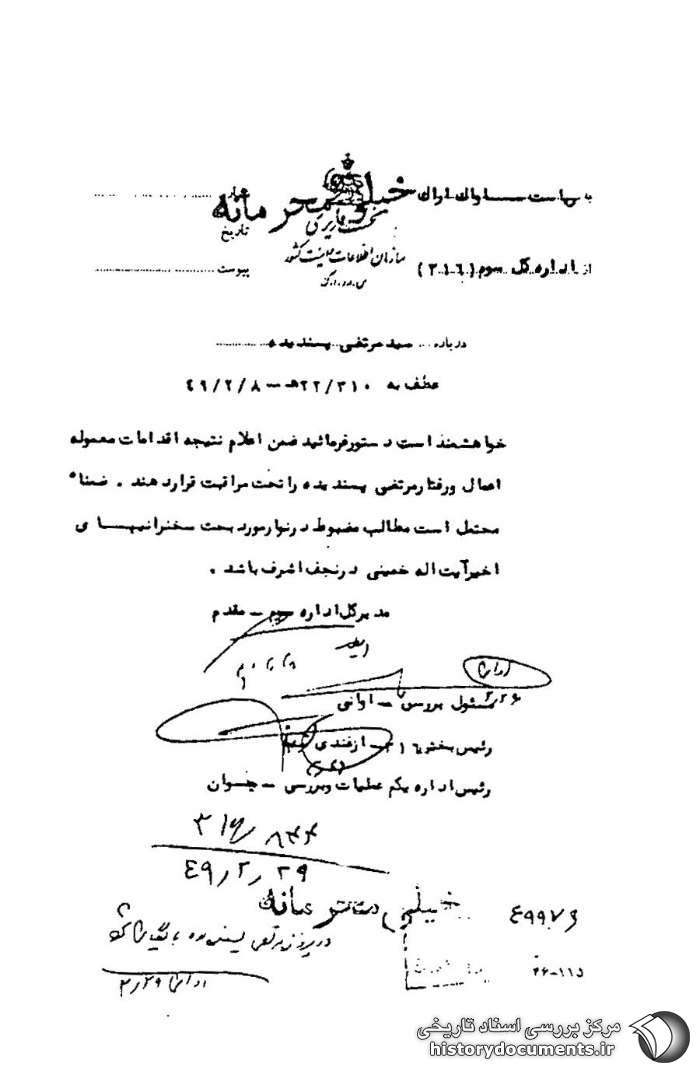 به ریاست ساواک اراک
خیلی محرمانه
شماره
نخست وزیری
تاریخ
از اداره کل سوم (۳۱۶)
سازمان اطلاعات و امنیت کشور
پیوست
س.ا.و.ا.ک
درباره سید مرتضی پسندیده
عطف به ۲۲/۳۱۰هـ - ۴۹/۲/۸
خواهشمند است دستور فرمائید ضمن اعلام نتیجه اقدامات معموله
اعمال ورفتار مرتضی پسندیده را تحت مراقبت قرار دهند . ضمنا"
محتمل است مطالب مضبوط در نوار مورد بحث سخنرانیهای
اخیر آیت اله خمینی در نجف اشرف باشد .
مدیر کل اداره سوم - مقدم
۲/۲۶
مسئول بررسی - اوانی
رئیس بخش ۳۱۶ - ازغندی
رئیس اداره یکم عملیات و بررسی - جوان
۳۱۶/۸۴۴
۴۹/۲/۲۹
خیلی محرمانه
در پرونده مرتضی پسندیده بایگانی شود
۲/۲۹
۲۶-۱۱۵
مرکز بررسی اسناد تاریخی
historydocuments.ir